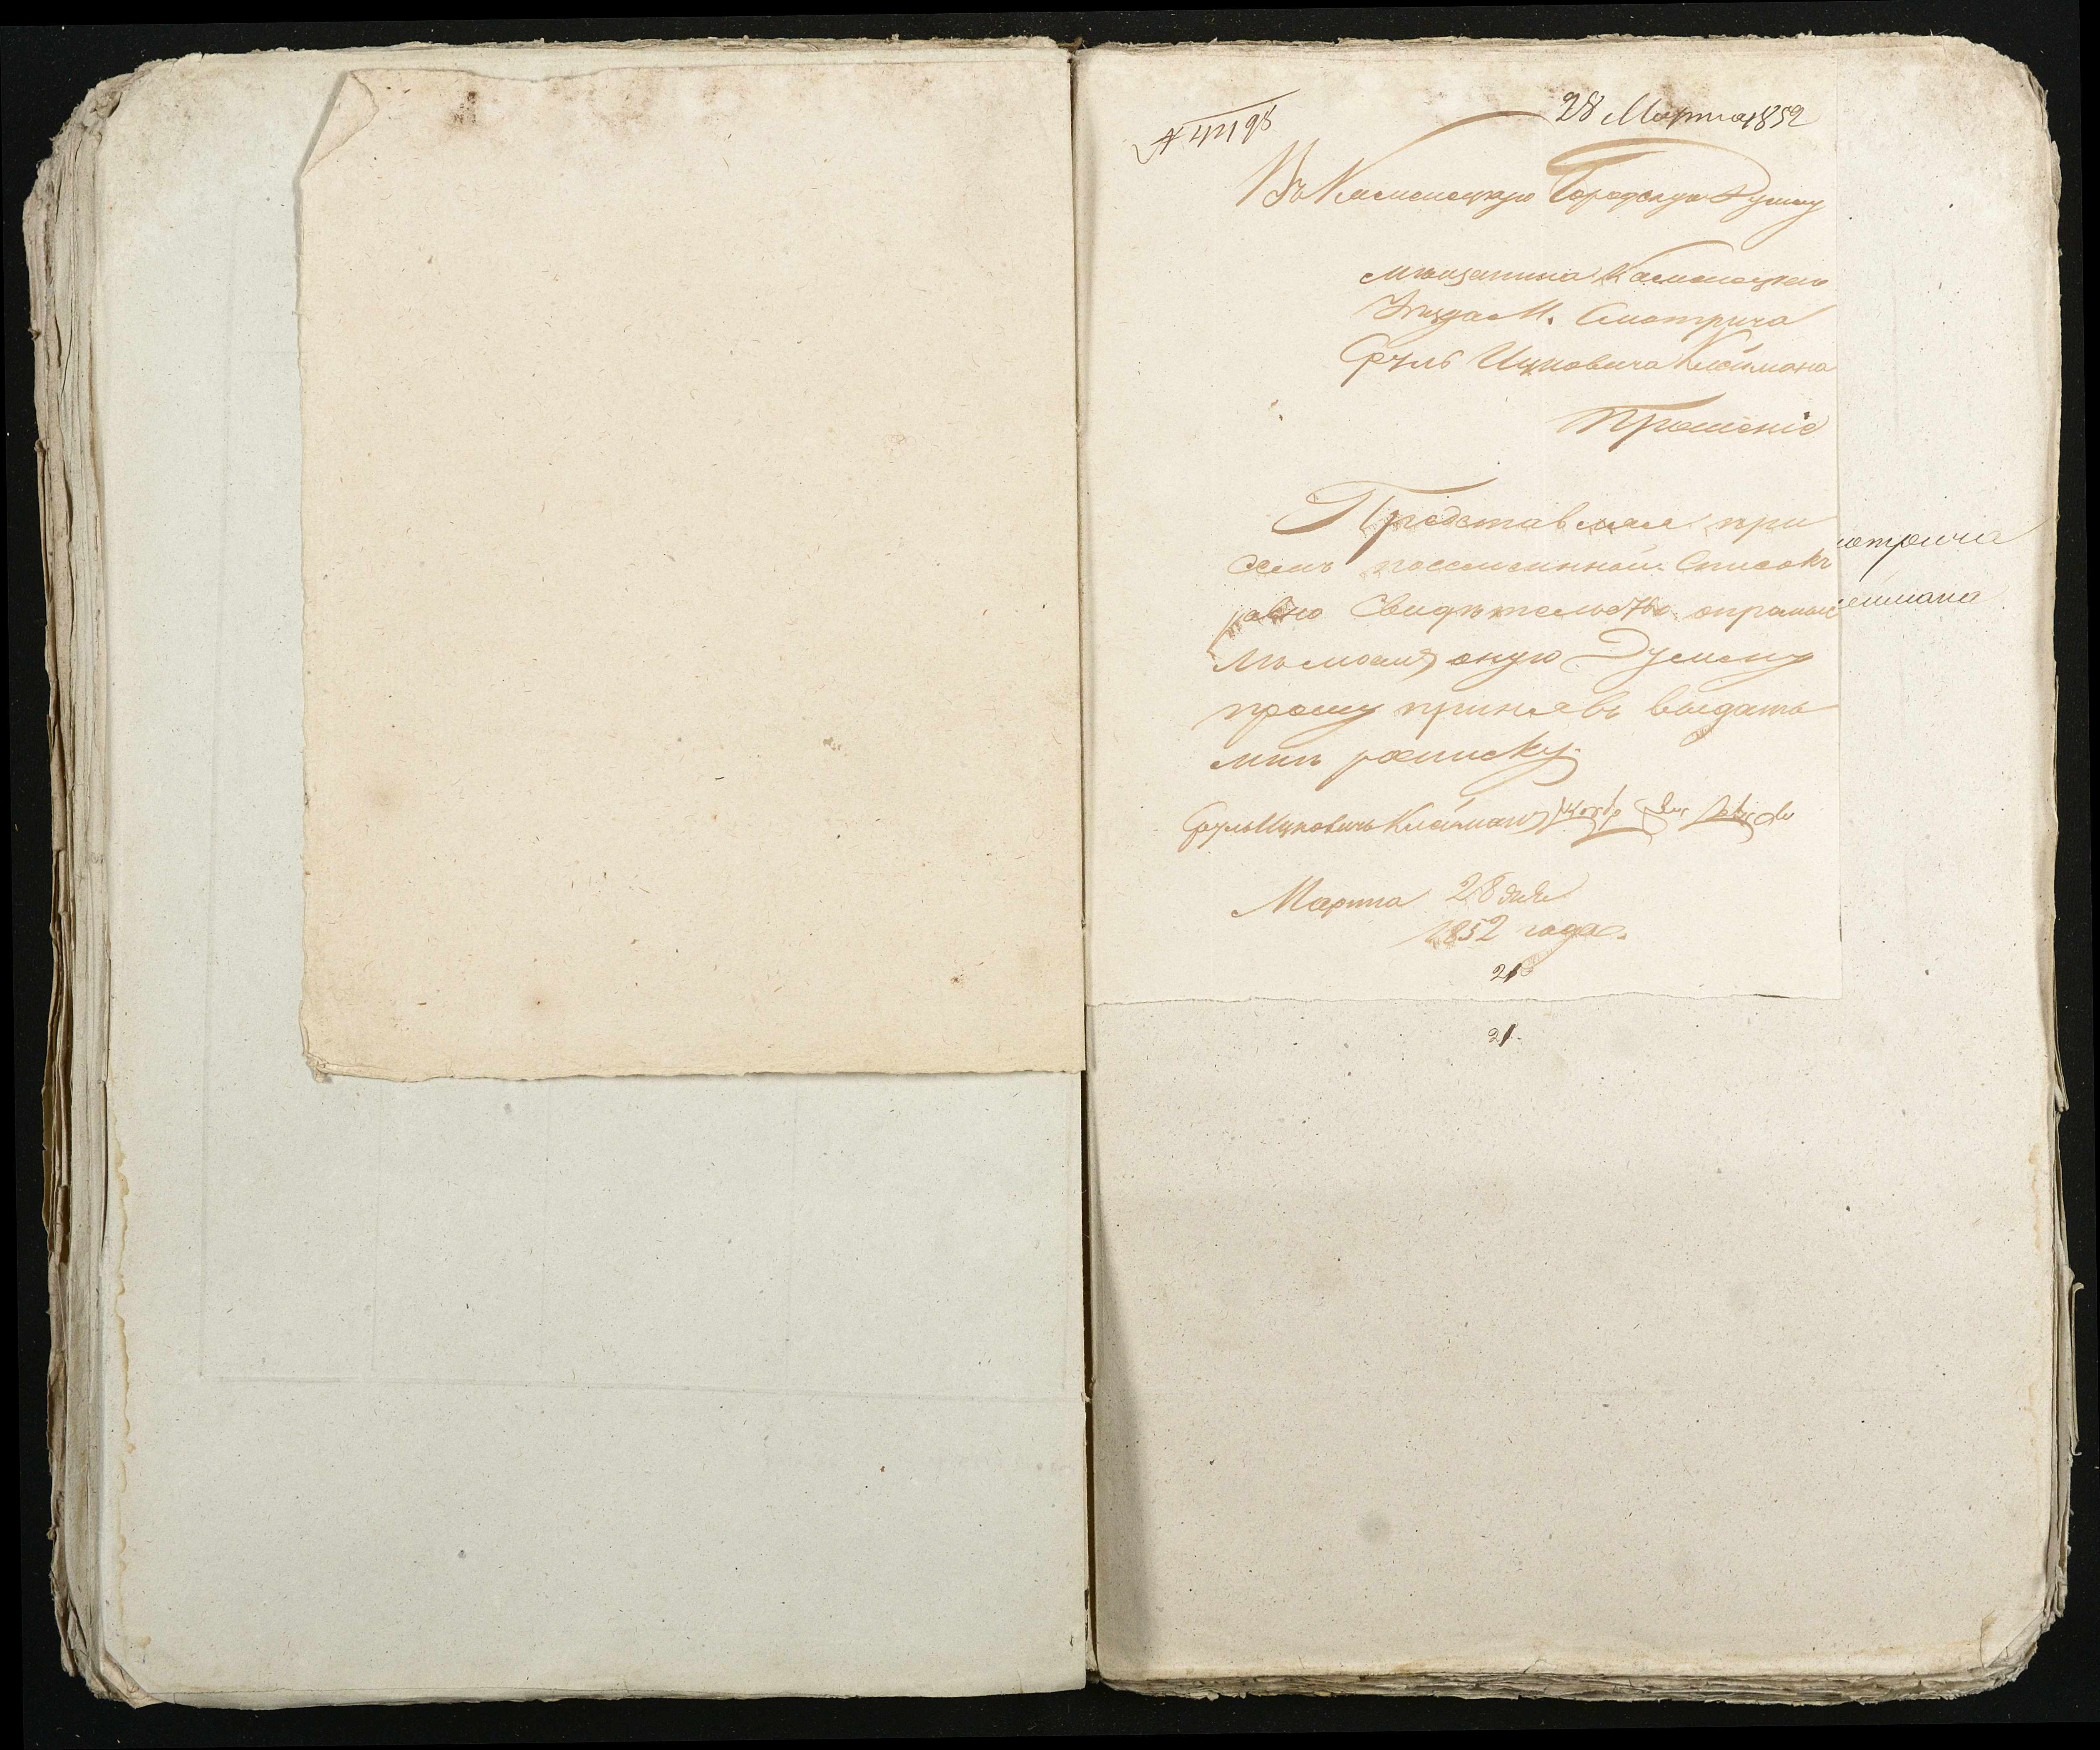 № 41198
28 Марта 1852
Въ Каменецкую Городскую Думу
мѣщанина Каменецкаго
Уѣзда М. Смотрича
Сруль Ицковича Клеймана
Прошеніе
Представляя при
семъ посемейный Списокъ
равно Свидѣтельство
оную Думу
прошу принявъ выдать
мнѣ росписку.
Сруль Ицковичь Клейманъ
Марта 28 дня
1852 года.
21
21.
отрича
еймана